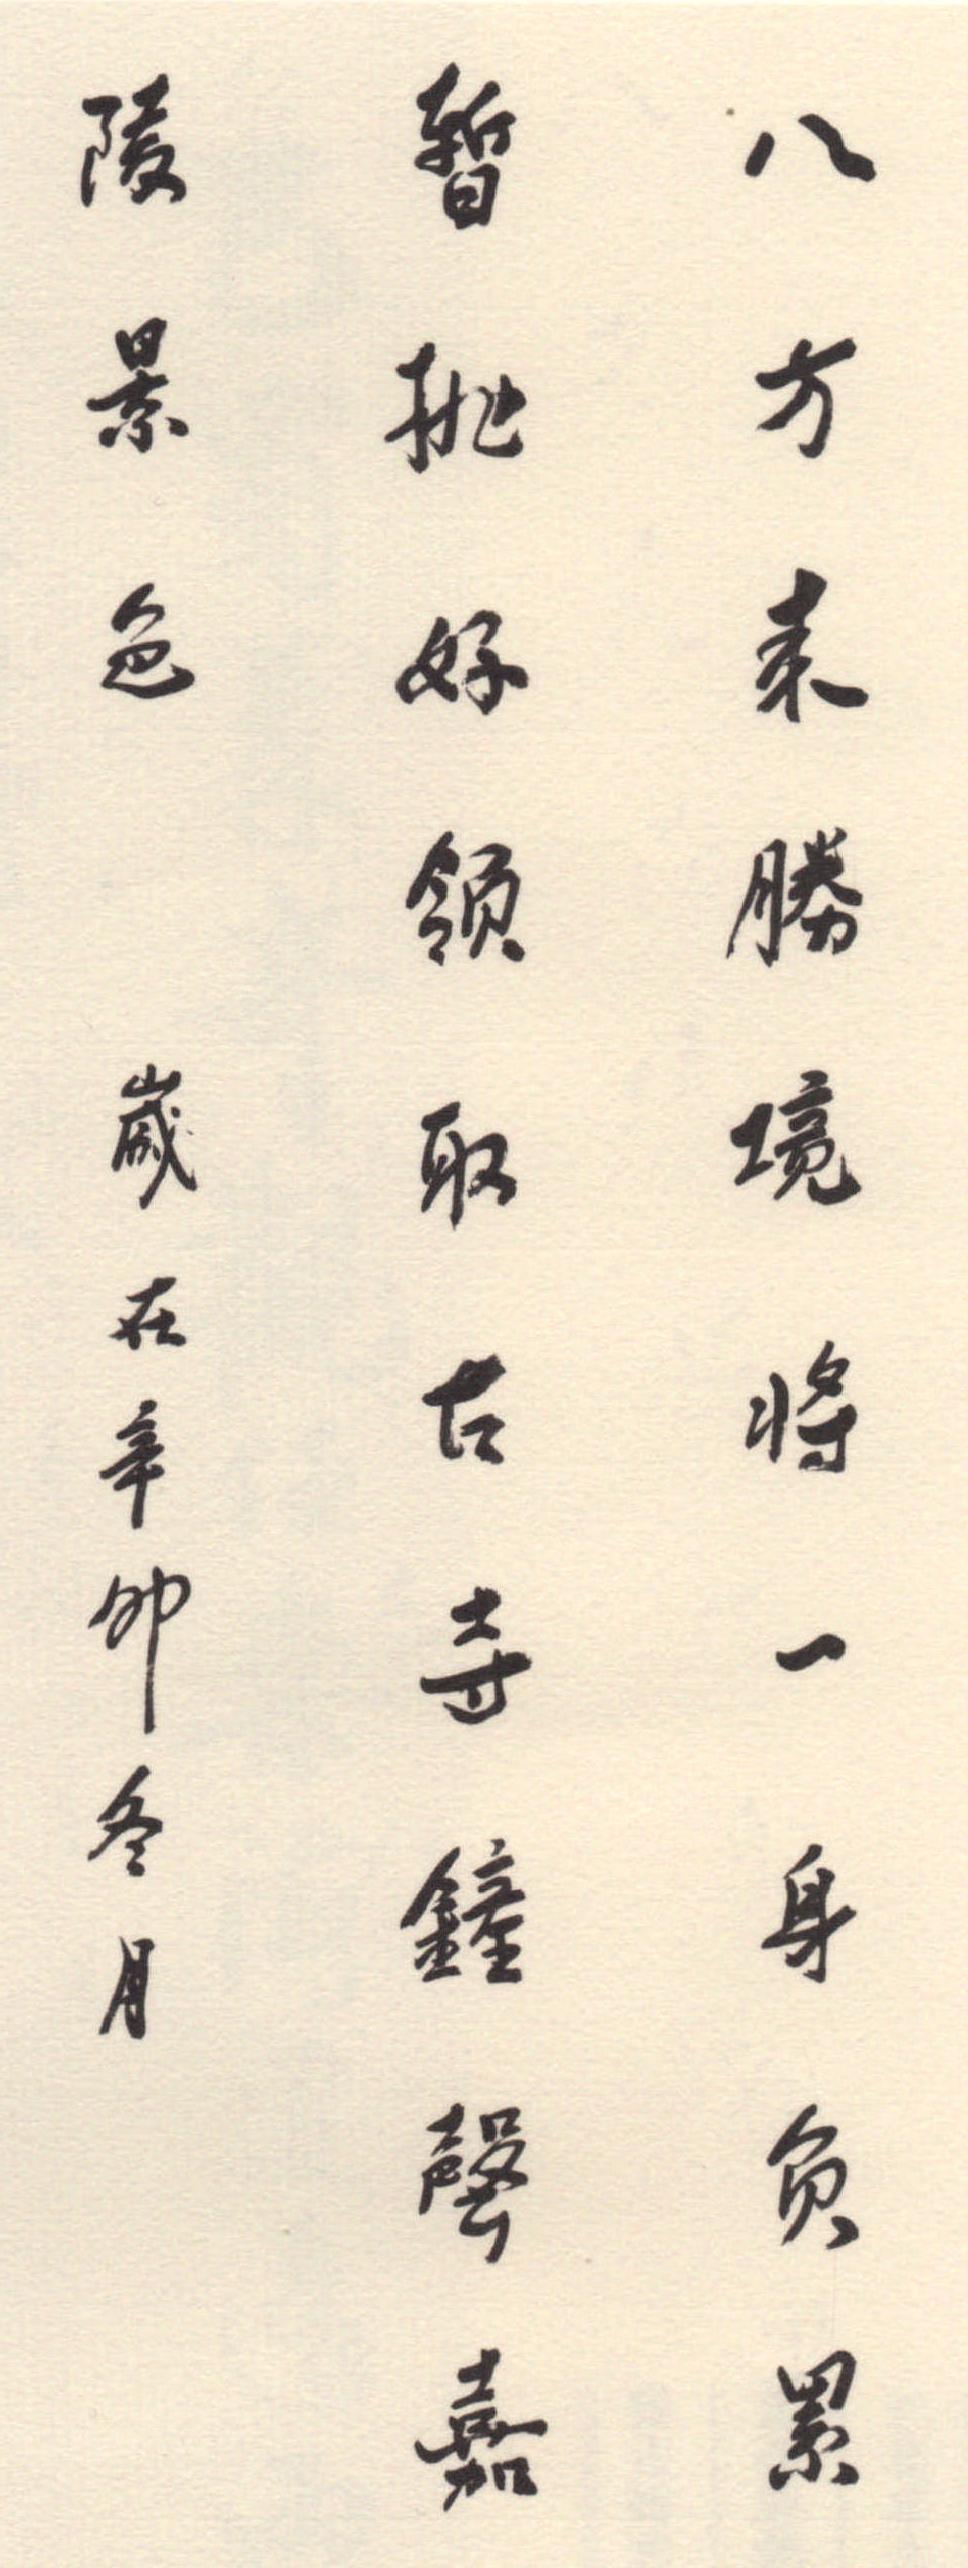 八方来勝境将一身負累
暫抛好領取古寺鐘聲嘉
陵景色 歲在辛卯冬月